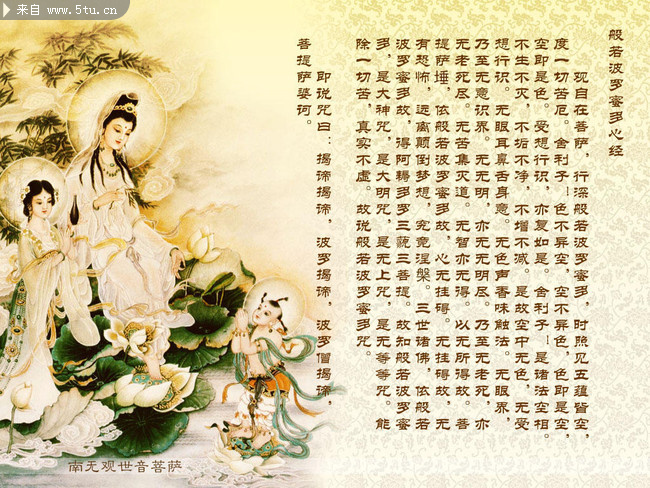 来自 www.5tu.cn
般若波罗蜜多心经
观自在菩萨，行深般若波罗蜜多，时照见五蕴皆空，
度一切苦厄。舍利子！色不异空，空不异色，色即是空，
空即是色。受想行识，亦复如是。舍利子！是诸法空相。
不生不灭，不垢不净，不增不减。是故空中无色，无受
想行识。无眼耳鼻舌身意。无色声香味触法。无眼界，
乃至无意识界。无无明，亦无无明尽。乃至无老死，亦
无老死尽。无苦集灭道。无智亦无得。以无所得故。菩
提萨埵，依般若波罗蜜多故，心无挂碍。无挂碍故，无
有恐怖，远离颠倒梦想，究竟涅槃。三世诸佛，依般若
波罗蜜多故，得阿耨多罗三藐三菩提。故知般若波罗蜜
多，是大神咒，是大明咒，是无上咒，是无等等咒。能
除一切苦，真实不虚。故说般若波罗蜜多咒。
即说咒曰：揭谛揭谛，波罗揭谛，波罗僧揭谛，
菩提萨婆诃。
南无观世音菩萨